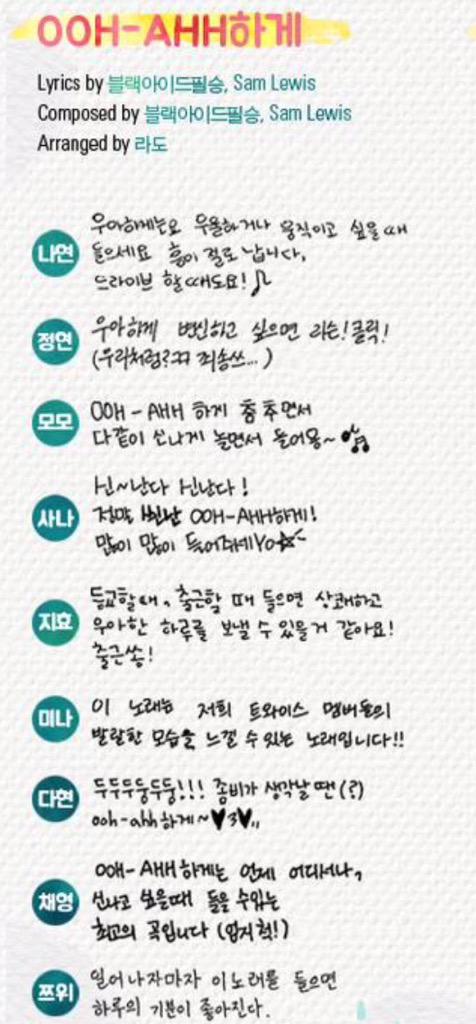 OOH-AHH하게
Lyrics by 블랙아이드필승, Sam Lewis
Composed by 블랙아이드필승, Sam Lewis
Arranged by 라도
나연
우아하게는요 우울하거나 움직이고 싶을 때
들으세요 흥이 절로 납니다.
드라이브 할 때도요!
정연
우아하게 변신하고 싶으면 리슨!클릭!
(우리처럼?ㄲㄲ 죄송쓰...)
모모
OOH-AHH 하게 춤추면서
다같이 신나게 놀면서 들어용~
사나
신~난다 신난다!
정말 신난 OOH-AHH하게!
많이 많이 들어주세Yo
지효
등교할때, 출근할 때 들으면 상쾌하고
우아한 하루를 보낼 수 있을거 같아요!
출근쏭!
미나
이 노래는 저희 트와이스 멤버들의
발랄한 모습을 느낄 수 있는 노래입니다!!
다현
두두두둥두둥!!! 좀비가 생각날 땐(?)
ooh-ahh하게~♥3♥,,
채영
OOH-AHH하게는 언제 어디서나,
신나고 싶을때 들을 수있는
최고의 곡입니다 (엄지척!)
쯔위
일어나자마자 이노래를 들으면
하루의 기분이 좋아진다.